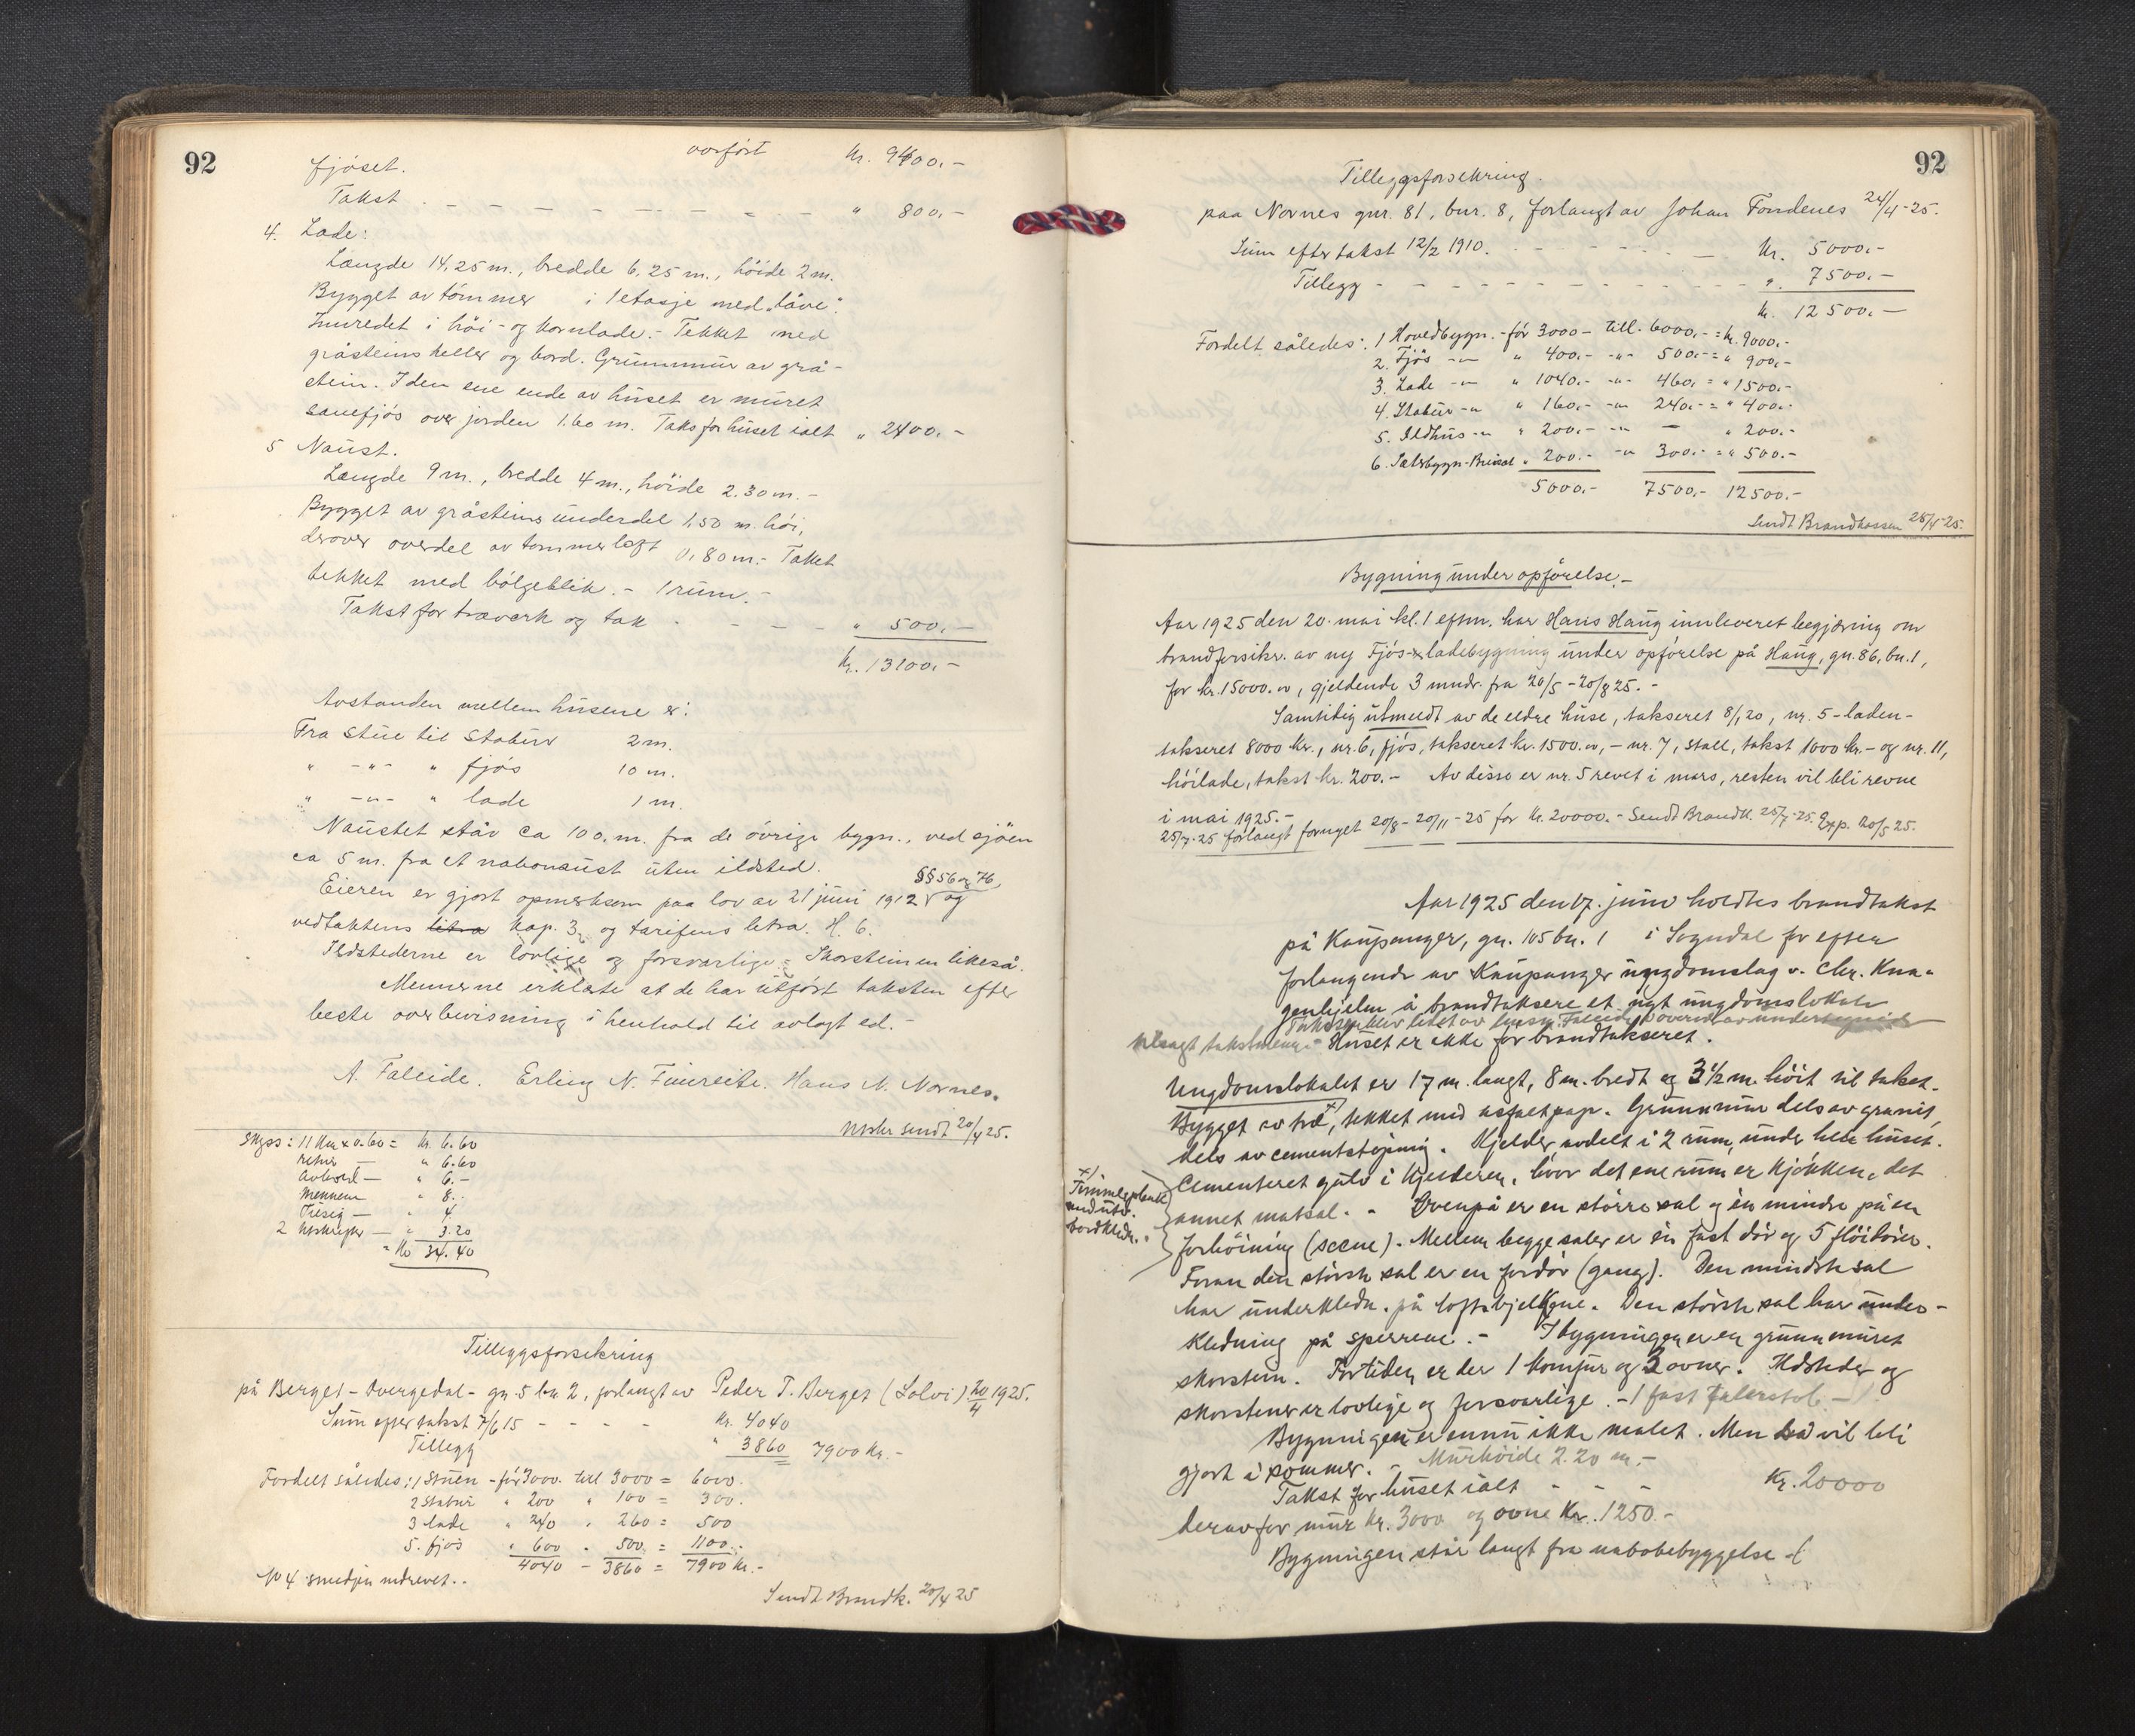 92
fjöset. overført kr. 9400.-
Takst . - - - - - - - - - " 800.-
4. Lade:
Længde 14.25 m., bredde 6.25 m., höide 2 m.
Bygget av tömmer i 1 etasje med "låve".
Innredet i höi- og kornlade. - Tekket med
gråsteinsheller og bord. Grunnmur av grå-
stein. I den ene ende av huset er muret
sauefjös over jorden 1.60 m. Takst for huset ialt " 2400.-
5 Naust.
Længde 9 m., bredde 4 m., höide 2.30 m. -
Bygget av gråsteins underdel 1,50 m. höi,
derover overdel av tømmerloft 0,80 m. - Taket
tekket med bölgeblik. - 1 rum. -
Takst for træverk og tak - - - - " 500.-
kr. 13100.-
Avstanden mellem husene er:
Fra stue til stabur 2 m.
" -"- " fjös 10 m.
" -"- " lade 1 m.
Naustet står ca 100. m. fra de övrige bygn., ved sjöen
ca 5 m. fra et nabonaust uten ildsted.
§§ 56 og 76,
Eieren er gjort opmerksom paa lov av 21 juni 1912 √ og
vedtaktens litra kap. 3, og tarifens litra. H. 6.
Ildstederne er lovlige og forsvarlige - Skorsteinen likeså.
Mennerne erklærte at de har utfört taksten efter
beste overbevisning i henhold til avlagt ed. -
A. Faleide. Erling N. Fimreite. Hans N. Nornes.
Utskr sendt 20/4 25.
Skyss: 11 km x 0.60 = kr. 6.60
retur — " 6.60
Avhold — " 6.-
Mennene " 8.-
Tilsig — " 4
2 utskrifter — " 3.20
= Kr 34.40
Tilleggsforsikring
på Berget - Övergedal - gn 5 bn 2, forlangt av Peder T. Berget (Solvi) 20/4 1925.
Sum efter takst 7/6 15 - - - - kr. 4040
Tillegg " 3860 7900 kr.-
Fordelt således: 1 Stuen - för 3000. till 3000 = 6000.
2 Stabur " 200 " 100 = 300.
3 lade " 240 " 260 = 500
5. fjös " 600 " 500. = 1100.-
4040 - 3860 = 7900 kr.-
No 4 smedjen nedrevet..
Sendt Brandk. 20/4 25
92
Tilleggsforsekring.
paa Nornes gnr. 81, bnr. 8, forlangt av Johan Fondenes 24/4-25.
Sum efter takst 12/2 1910. - - - - - kr. 5000.-
Tillegg - - - - - - - - - - - " 7500.-
kr. 12500.-
Fordelt således: 1 Hovedbygn. - för 3000 - till. 6000.- = kr. 9000.-
2. Fjös -"- " 400.- -"- 500.- = " 900.-
3. Lade -"- " 1040.- -"- 460. = " 1500.-
4. Stabur -"- " 160.- -"- 240.- = " 400.-
5. Ildhus -"- " 200.- -"- — " 200.-
6. Sætrbygn - " 200.- -"- 300.- = " 500.-
5000.- 7500.- 12500.-
Sendt Brandkassen 25/4-25.
Bygning under opförelse. -
Aar 1925 den 20. mai kl. 1 eftm. har Hans Haug innleveret begjæring om
brandforsikr. av ny Fjös- & ladebygning under opförelse på Haug, gn. 86, bn. 1,
for kr. 15000.00, gjeldende 3 mndr. fra 20/5 - 20/8 25. -
Samtidig utmeldt av de eldre huse, takseret 8/1 20, nr. 5 - laden -
takseret 8000 kr., nr. 6, fjös, takseret kr. 1500.00, - nr. 7, stall, takst 1000 kr. - og nr. 11,
höilade, takst kr. 200. - Av disse er nr. 5 revet i mars, resten vil bli revne
i mai 1925. -
25/7-25 forlangt fornyet 20/8 - 20/11 - 25 for kr. 20000. - Sendt Brandk. 25/7-25. Exp. 20/5 25.
Aar 1925 den 17. juni holdtes brandtakst
på Kaupanger, gn. 105 bn. 1 i Sogndal for efter
forlangende av Kaupanger ungdomslag v. Chr. Kna-
genhjelm å brandtaksere et nyt ungdomslokale
Taksten blev ledet av lensm. Faleide, i overvær av undertegnede
tilsagt takstmenn. - Huset er ikke för brandtakseret.
Ungdomslokalet er 17 m. langt, 8 m. bredt og 3 1/2 m. höit til taket.
Bygget av træ x), tekket med asfaltpap. Grunnmur dels av granit,
dels av cementstöpning. Kjelder, avdelt i 2 rum, under hele huset.
Cementeret gulv i kjelderen, hvor det ene rum er kjökken, det
annet matsal. - Ovenpå er en större sal og én mindre på en
x) Tömmerplank
med utv.
bordkledn.
forhöining (scene). Mellem begge saler er én fast dör og 5 flöidörer.
Foran den störste sal er en fordör (gang). Den mindste sal
har underkledn. på loftsbjelkene. Den störste sal har under-
kledning på sperrene. - I bygningen er en grunnmuret
skorstein. Fortiden er der 1 komfur og 3 ovner. Ildsteder og
skorstener er lovlige og forsvarlige. - 1 fast talerstol. -
Bygningen er ennu ikke malet. Men det vil bli
gjort i sommer. - Murhöide 2.20 m. -
Takst for huset ialt - - - Kr. 20000
derav for mur kr. 3000 og ovne Kr. 1250. -
Bygningen står langt fra nabobebyggelse -